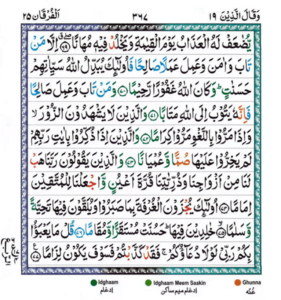 وَقَالَ الَّذِيْنَ ١٩ ٣٦٧ اَلْفُرْقَان ٢٥
يُّضٰعَفْ لَهُ الْعَذَابُ يَوْمَ الْقِيٰمَةِ وَيَخْلُدْ فِيْهٖ مُهَانًا ۝٦٩ اِلَّا مَنْ
تَابَ وَاٰمَنَ وَعَمِلَ عَمَلًا صَالِحًا فَاُولٰٓئِكَ يُبَدِّلُ اللّٰهُ سَيِّاٰتِهِمْ
حَسَنٰتٍ ؕ وَكَانَ اللّٰهُ غَفُوْرًا رَّحِيْمًا ۝٧٠ وَمَنْ تَابَ وَعَمِلَ صَالِحًا
فَاِنَّهٗ يَتُوْبُ اِلَى اللّٰهِ مَتَابًا ۝٧١ وَالَّذِيْنَ لَا يَشْهَدُوْنَ الزُّوْرَ ۙ
وَاِذَا مَرُّوْا بِاللَّغْوِ مَرُّوْا كِرَامًا ۝٧٢ وَالَّذِيْنَ اِذَا ذُكِّرُوْا بِاٰيٰتِ رَبِّهِمْ
لَمْ يَخِرُّوْا عَلَيْهَا صُمًّا وَّعُمْيَانًا ۝٧٣ وَالَّذِيْنَ يَقُوْلُوْنَ رَبَّنَا هَبْ
لَنَا مِنْ اَزْوَاجِنَا وَذُرِّيّٰتِنَا قُرَّةَ اَعْيُنٍ وَّاجْعَلْنَا لِلْمُتَّقِيْنَ
اِمَامًا ۝٧٤ اُولٰٓئِكَ يُجْزَوْنَ الْغُرْفَةَ بِمَا صَبَرُوْا وَيُلَقَّوْنَ فِيْهَا تَحِيَّةً
وَّسَلٰمًا ۝٧٥ خٰلِدِيْنَ فِيْهَا ؕ حَسُنَتْ مُسْتَقَرًّا وَّمُقَامًا ۝٧٦ قُلْ مَا يَعْبَؤُا
بِكُمْ رَبِّيْ لَوْلَا دُعَآؤُكُمْ ۚ فَقَدْ كَذَّبْتُمْ فَسَوْفَ يَكُوْنُ لِزَامًا ۝٧٧
Idghaam Idghaam Meem Saakin Ghunna
ادغام ادغام میم ساکن غنّہ